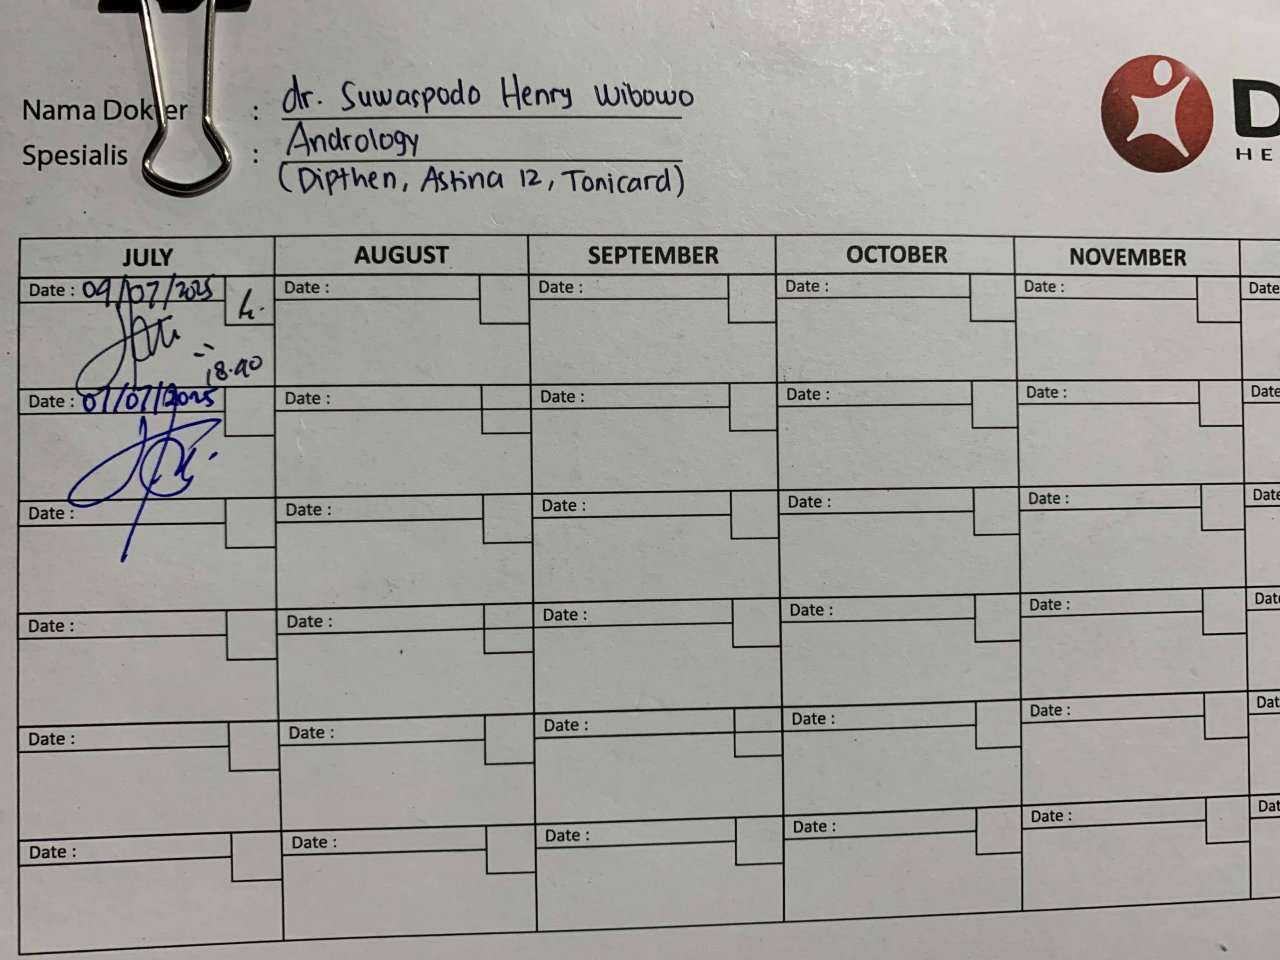 Nama Dokter : dr. Suwaspodo Henry Wibowo
Spesialis : Andrology
(Dipthen, Astina 12, Tonicard)
D
HE
JULY AUGUST SEPTEMBER OCTOBER NOVEMBER
Date : 09/07/2025 Date : Date : Date : Date : Date
18.40
Date : 07/07/2025 Date : Date : Date : Date : Date
Date : Date : Date : Date : Date : Date
Date : Date : Date : Date : Date : Dat
Date : Date : Date : Date : Date : Dat
Date : Date : Date : Date : Date : Dat